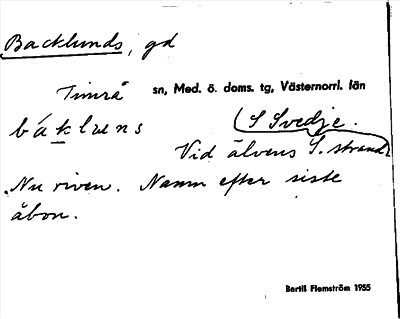 Backlunds, gd
Timrå sn, Med. ö. doms. tg, Västernorrl. län
bákluens
(S Svedje.
Vid älvens S. strand.
Nu riven. Namn efter siste
åbon.
Bertil Flemström 1955